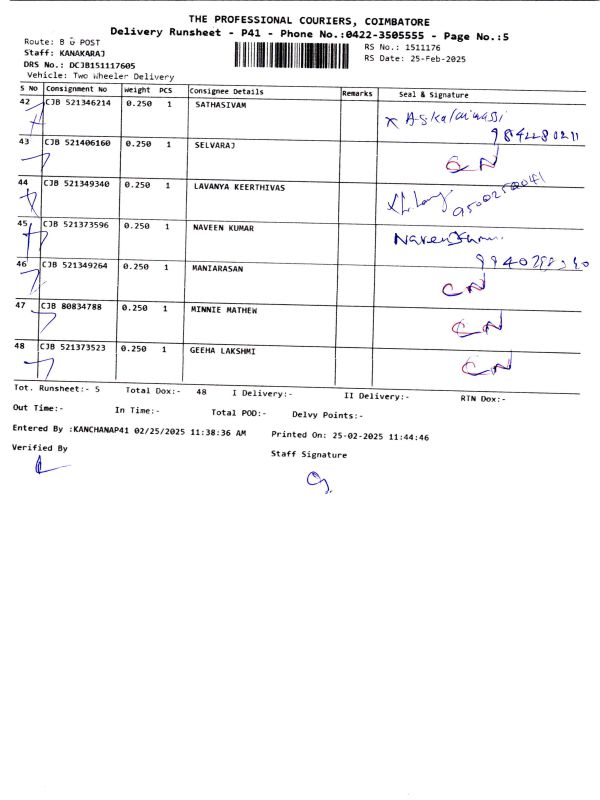 THE PROFESSIONAL COURIERS, COIMBATORE
Delivery Runsheet - P41 - Phone No.:0422-3505555 - Page No.:5
Route: B G POST
RS No.: 1511176
Staff: KANAKARAJ
RS Date: 25-Feb-2025
DRS No.: DCJB151117605
Vehicle: Two Wheeler Delivery
S No Consignment No Weight PCS Consignee Details Remarks Seal & Signature
42 CJB 521346214 0.250 1 SATHASIVAM
9842280211
43 CJB 521406160 0.250 1 SELVARAJ
CN
44 CJB 521349340 0.250 1 LAVANYA KEERTHIVAS
45 CJB 521373596 0.250 1 NAVEEN KUMAR
46 CJB 521349264 0.250 1 MANIARASAN
CN
47 CJB 80834788 0.250 1 MINNIE MATHEW
CN
48 CJB 521373523 0.250 1 GEEHA LAKSHMI
CN
Tot. Runsheet:- 5 Total Dox:- 48 I Delivery:- II Delivery:- RTN Dox:-
Out Time:- In Time:- Total POD:- Delvy Points:-
Entered By :KANCHANAP41 02/25/2025 11:38:36 AM Printed On: 25-02-2025 11:44:46
Verified By Staff Signature